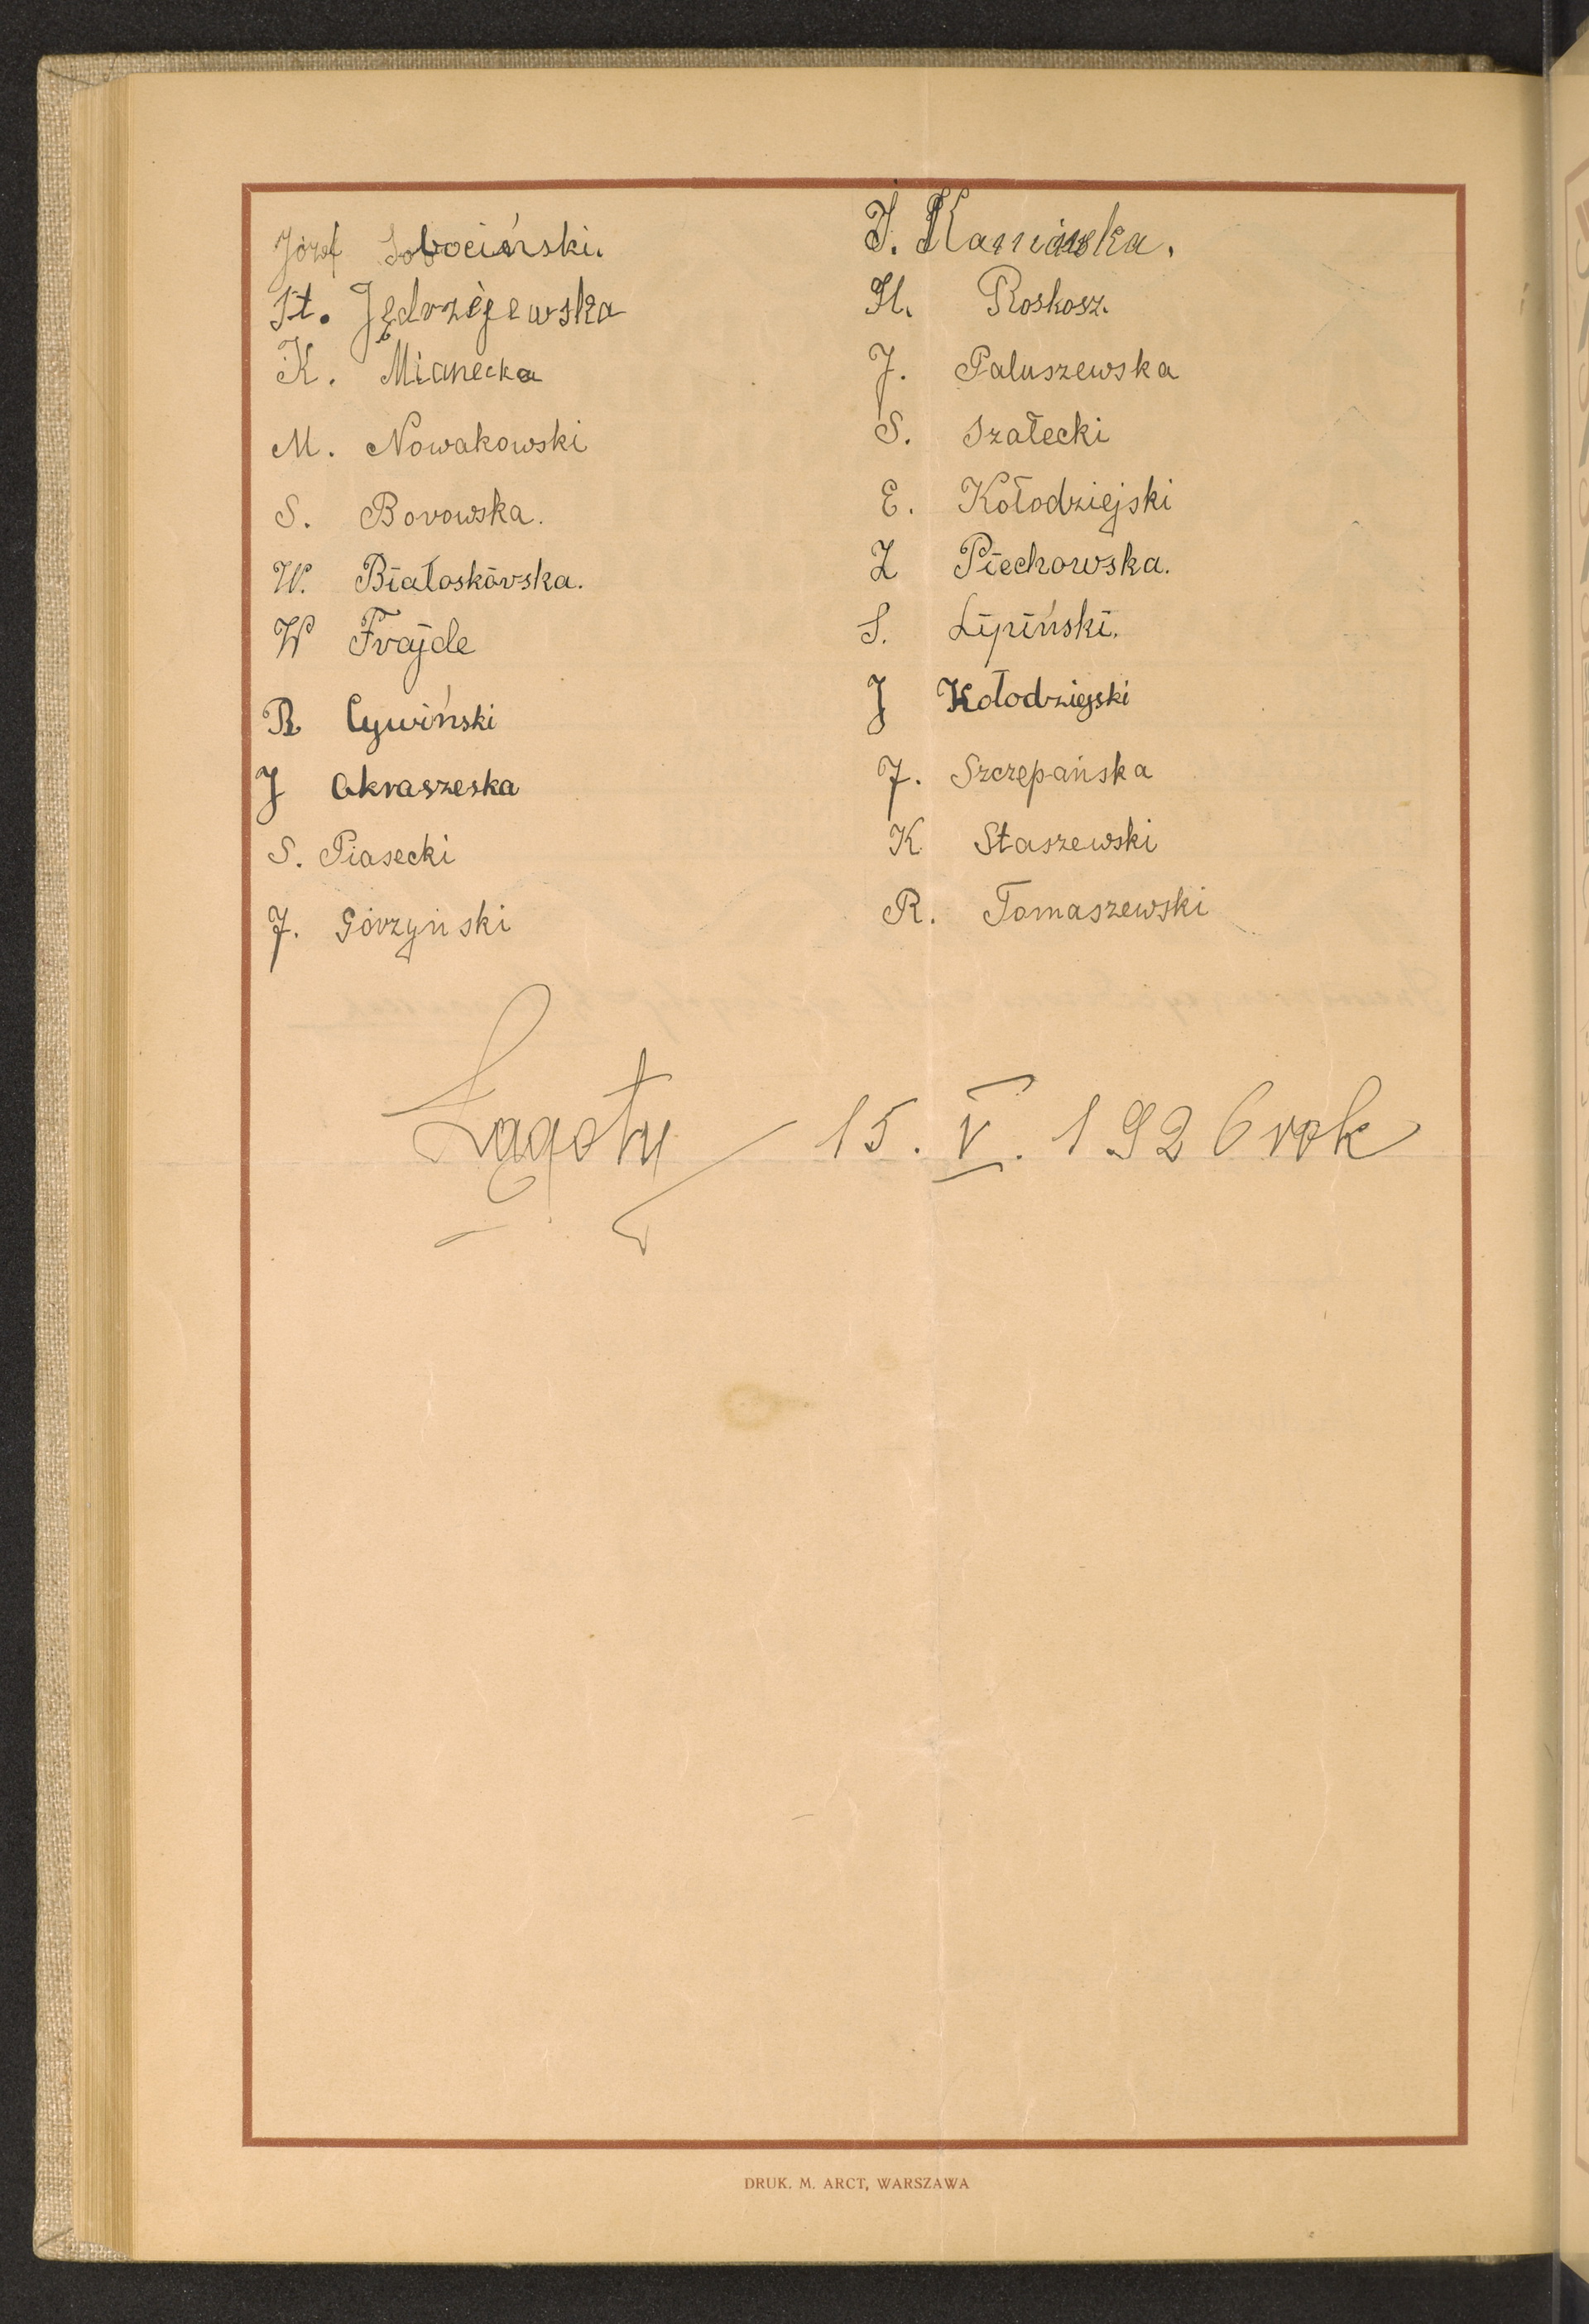 Józef Sobociński.
St. Jędrzejewska
K. Mianecka
M. Nowakowski
S. Borowska.
W. Białoskórska.
W Frajde
R Cywiński
J Okraszeska
S. Piasecki
J. Górzyński
J. Kaniewska.
H. Roskosz.
J. Paluszewska
S. Szałecki
E. Kołodziejski
Z Piechowska.
S. Lipiński.
J Kołodziejski
J. Szczepańska
K Staszewski
R. Tomaszewski
Łęgoty 15. V. 1926 rok
DRUK. M. ARCT, WARSZAWA